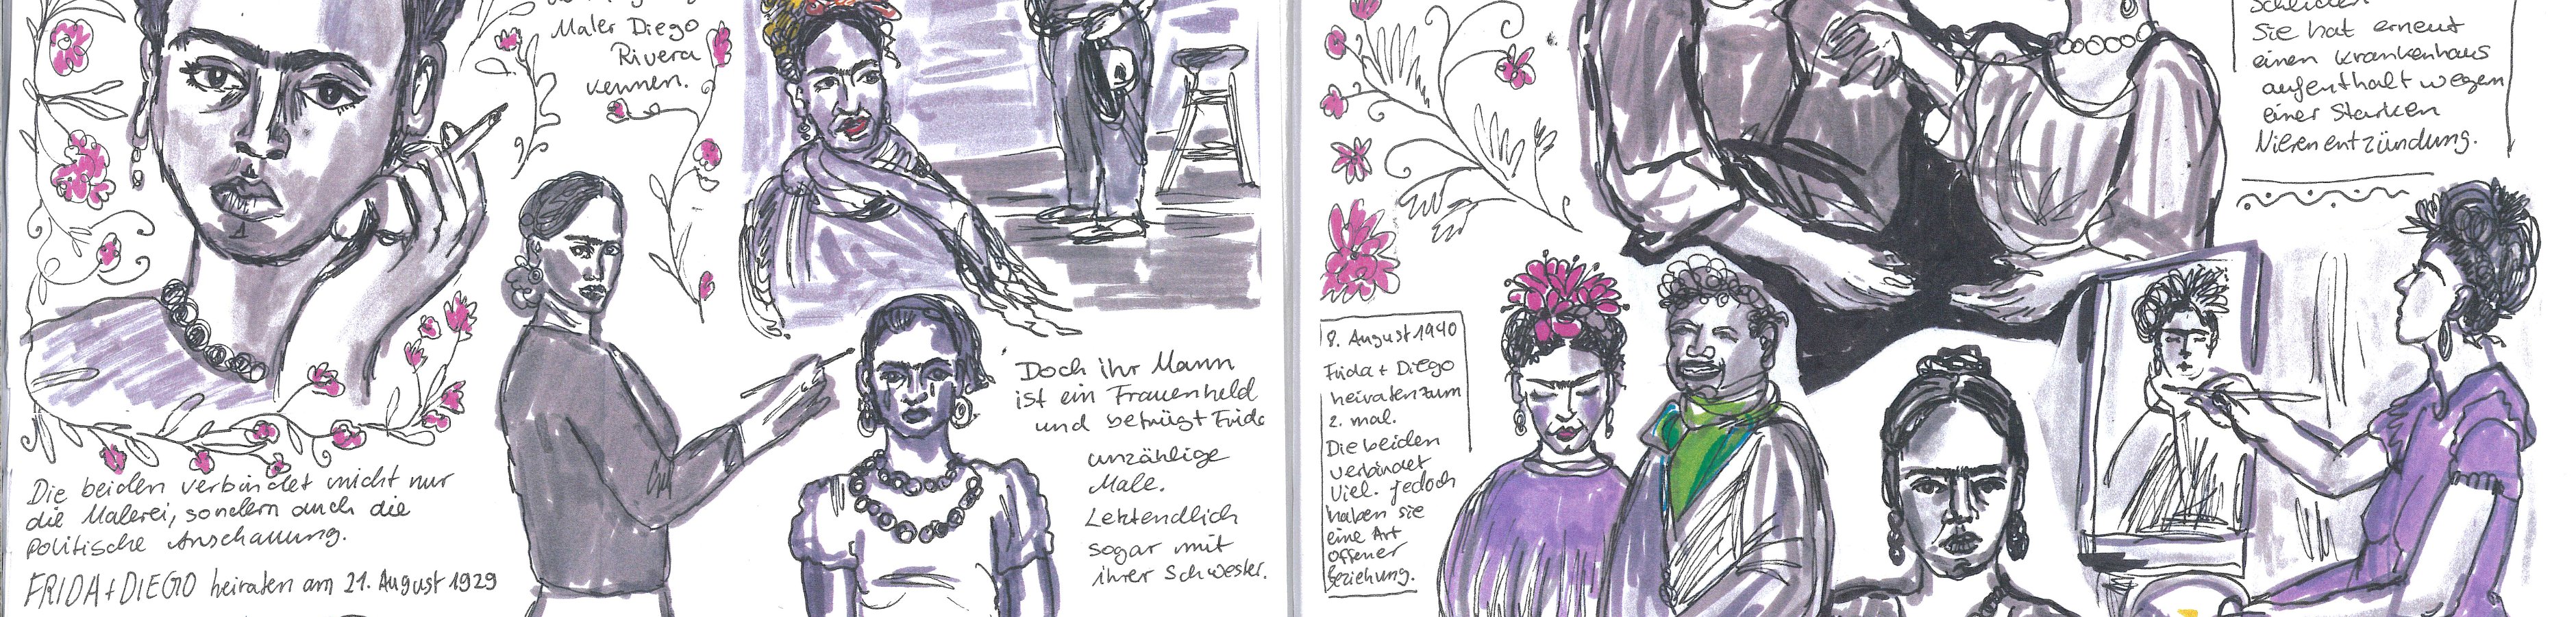 Maler Diego
Rivera
kennen.
Die beiden verbindet nicht nur
die Malerei, sondern auch die
Politische Anschauung.
FRIDA + DIEGO heiraten am 21. August 1929
Doch ihr Mann
ist ein Frauenheld
und betrügt Frida
unzählige
Male.
Letztendlich
sogar mit
ihrer Schwester.
Scheiden
Sie hat erneut
einen Krankenhaus
aufenthalt wegen
einer Starken
Nierenentzündung.
8. August 1940
Frida + Diego
heiraten zum
2. mal.
Die beiden
verbindet
viel. Jedoch
haben sie
eine Art
offener
Beziehung.